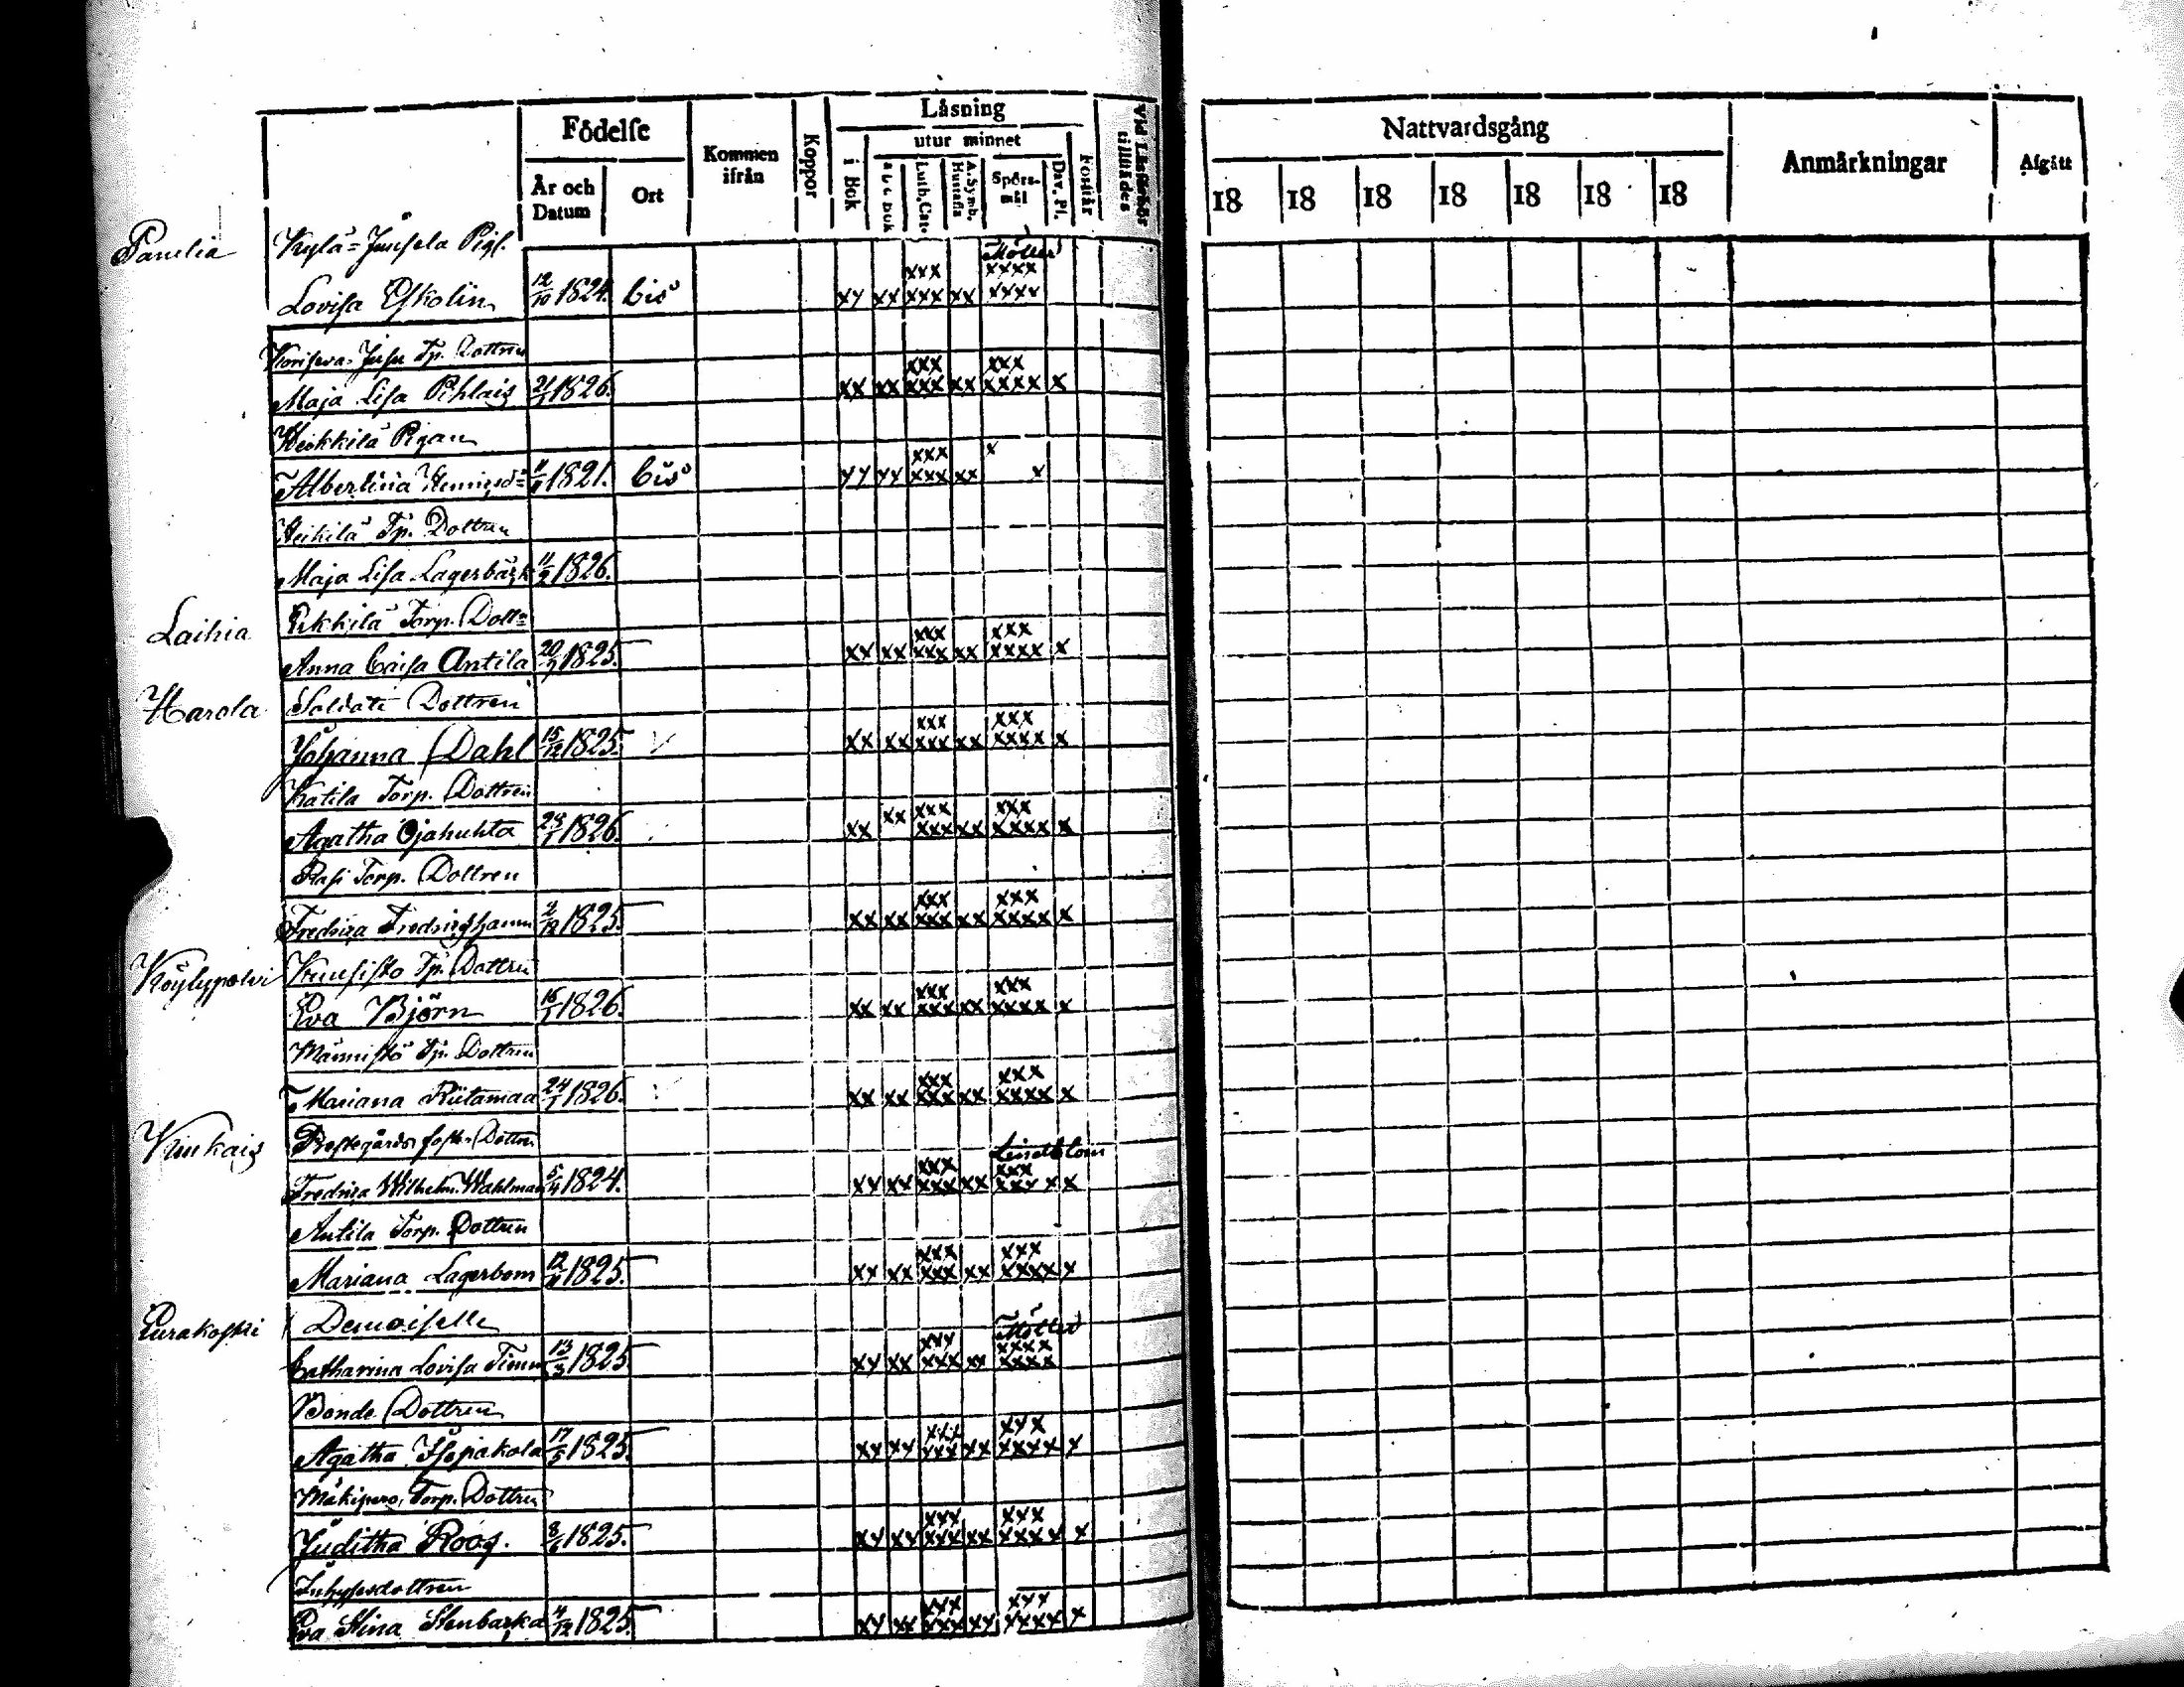 Födelse
Läsning
Vid Läsförhör tillstädes
Kommen ifrån
Koppor
utur minnet
År och Datum
Ort
i Bok
a b c bok
Luth. Cat.
A. Symb. Hustafla
Spörs-mål
Dav. Ps.
Förstår
Nattvardsgång
Anmärkningar
Afgått
18 18 18 18 18 18 18
Panelia Kylä-Juusela Pigl.
Möller
xxx xxxx
Lovisa Eskolin 12/10 1824. bis xx xx xxx xx xxxx
Tp. Dottren
xxx xxx
Maja Lisa Pihlaig 21/1 1826. xx xx xxx xx xxxx x
Heikkilä Pigan
xxx x
Albertina Henricsd= 11/11 1821. bis xx xx xxx xx x
Heikilä Tp. Dottren
Maja Lisa Lagerbäck 11/2 1826.
Laihia Eikkilä Torp. Dott=
xxx xxx
Anna Caisa Antila 20/7 1825. xx xx xxx xx xxxx x
Harola Soldats Dottren
xxx xxx
Johanna Dahl 15/12 1825. xx xx xxx xx xxxx x
Katila Torp. Dottren
xxx xxx
Agatha Ojahuhta 28/1 1826. xx xx xxx xx xxxx x
Rasi Torp. Dottren
xxx xxx
Fredrica 2/12 1825. xx xx xxx xx xxxx x
Köylypolvi Kuusisto Tp. Dottren
xxx xxx
Eva Björn 16/1 1826. xx xx xxx xx xxxx x
Männistö Tp. Dottren
xxx xxx
Mariana Riitamaa 24/1 1826. xx xx xxx xx xxxx x
Kiukais Prestegårds foster Dottren
Lindblom
xxx xxx
Fredrica Wilhelm. Wahlman 5/4 1824. xx xx xxx xx xxxx x
Antila Torp. Dottren
xxx xxx
Mariana Lagerbom 12/11 1825. xx xx xxx xx xxxx x
Eurakoski Demoiselle
Möller
xxx xxxx
Catharina Lovisa Timm 13/3 1825 xx xx xxx xx xxxx
Bonde Dottren
xxx xxx
Agatha Isopakola 17/5 1825. xx xx xxx xx xxxx x
Mäkipero, Torp. Dottren
xxx xxx
Juditha Roos. 8/6 1825. xx xx xxx xx xxxx x
Inhysesdottren
xxx xxx
Eva Stina Stenbacka 4/12 1825. xx xx xxx xx xxxx x